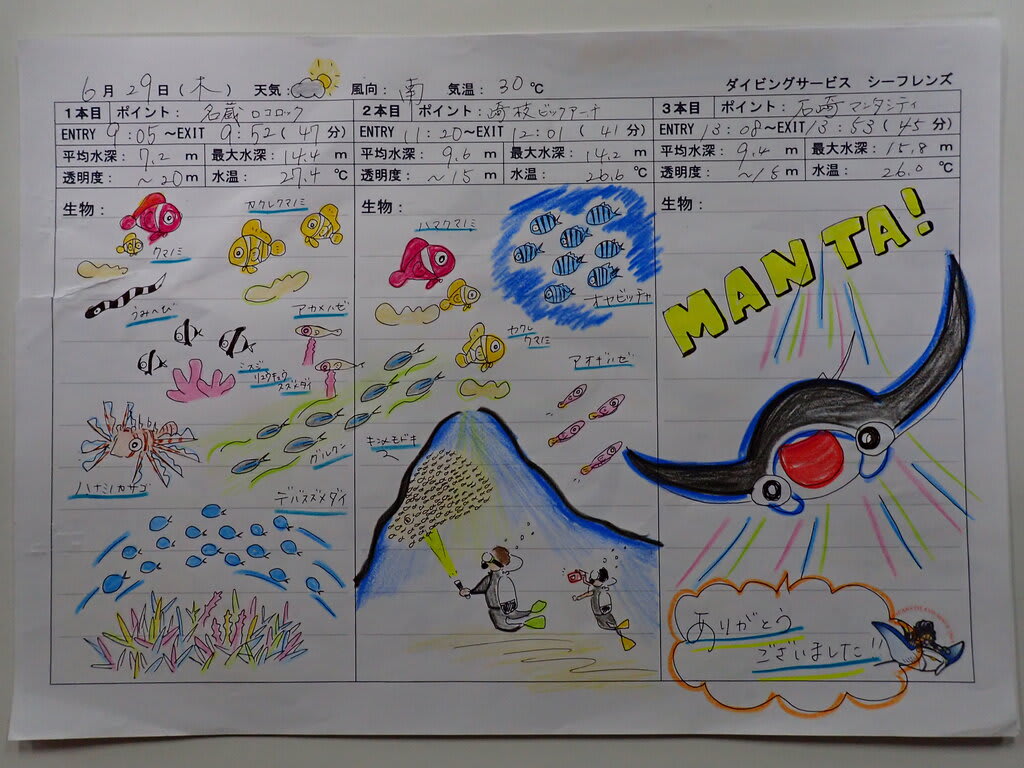 6月29日(木) 天気: 風向: 南 気温: 30℃ ダイビングサービス シーフレンズ
1本目 ポイント: 名蔵ロコロック
ENTRY 9:05~EXIT 9:52(47分)
平均水深: 7.2 m 最大水深: 14.4 m
透明度: ~20m 水温: 27.4 ℃
生物:
カクレクマノミ
クマノミ
うみへび
アカメハゼ
ミスジ
リュウキュウ
スズメダイ
グルクン
ハナミノカサゴ
デバスズメダイ
2本目 ポイント: 崎枝ビックアーチ
ENTRY 11:20~EXIT 12:01(41分)
平均水深: 9.6 m 最大水深: 14.2 m
透明度: ~15m 水温: 26.6 ℃
生物:
ハマクマノミ
オヤビッチャ
カクレ
クマノミ
アオギハゼ
キンメモドキ
3本目 ポイント: 石崎マンタシティ
ENTRY 13:08~EXIT 13:53(45分)
平均水深: 9.4 m 最大水深: 15.8 m
透明度: ~15m 水温: 26.0 ℃
生物:
MANTA!
ありがとう
ございました!!